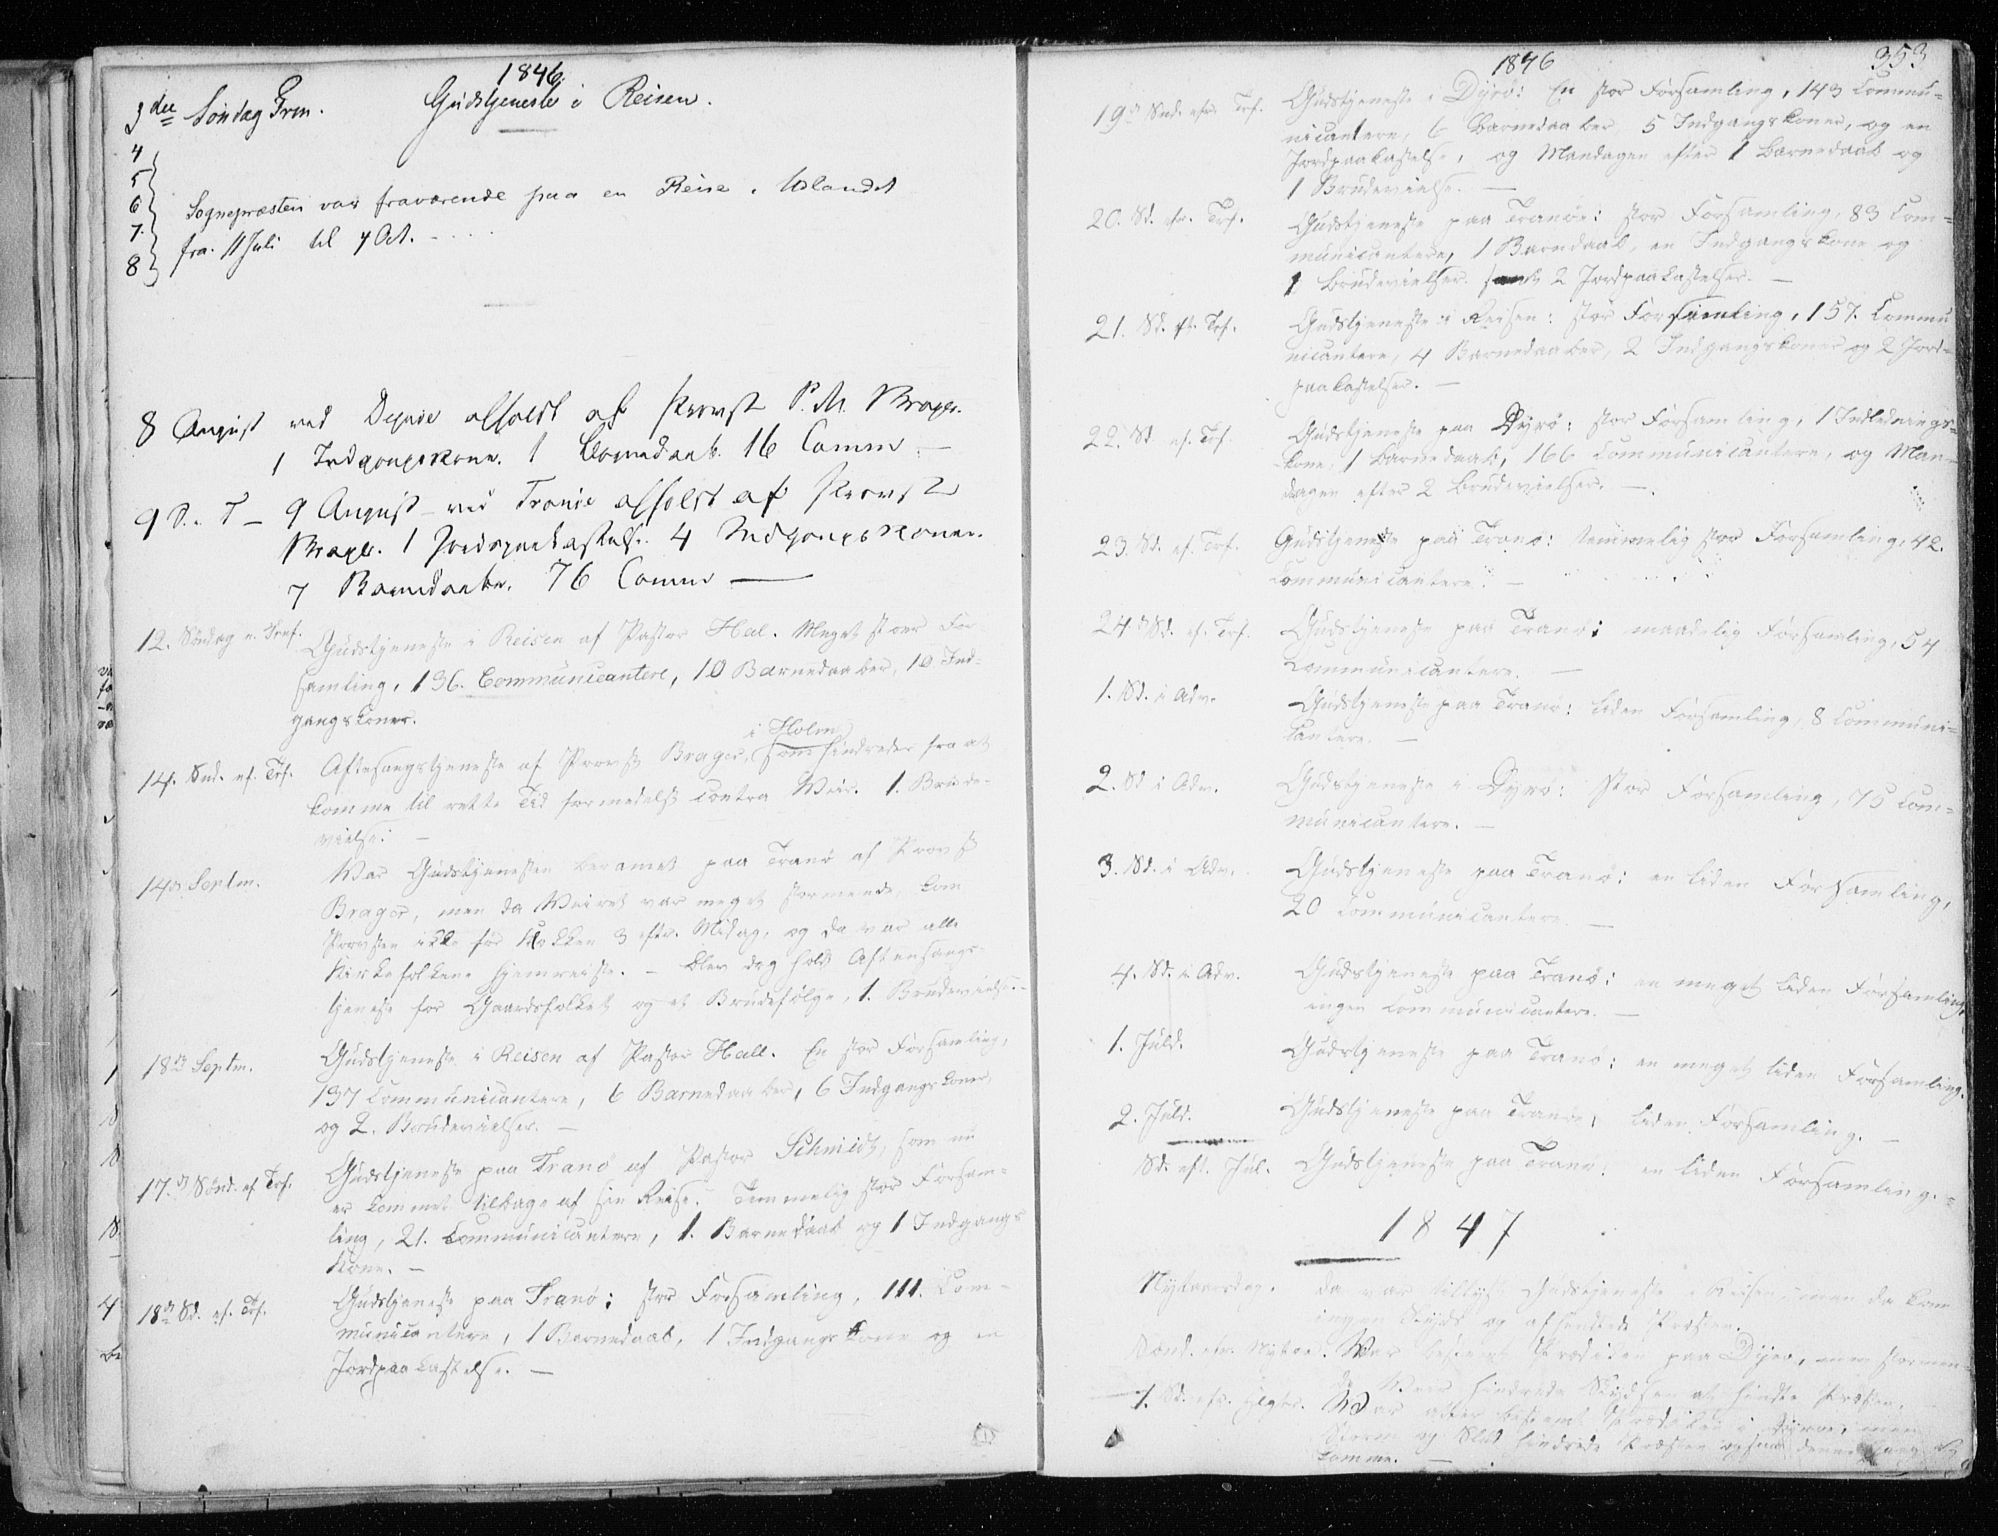 1846.
3die Søndag Tren. Gudstjeneste i Reisen.
4
5
6 Sognepræsten var fraværende paa en Reise i Udlandet
7. fra 11 Juli til 7 Oct.
8
8 August ved Dyroe afholdt af Provst P. M. Brager.
1 Indgangskone. 1 Barnedaab. 16 Comm. –
9 S. e. T – 9 August – ved Tranöe afholdt af Provst
Brager. 1 Jordpaakastelse. 4 Indgangskoner.
7 Barnedaabe. 76 Comm –
12. Søndag e. Tref. Gudstjeneste i Reisen af Pastor Hal. Meget stoer For
samling, 136. Communicantere, 10 Barnedaaber, 10 Ind-
gangskoner.
i Holm
14. Snd. ef. Tref. Aftesangstjeneste af Provst Brager, som hindredes fra at
komme til rette Tid formedelst contra Veir. 1. Brude-
vielse. –
14de Septm. Var Gudstjenesten beramet paa Tranö af Provst
Brager, men da Veiret var meget stormende, kom
Provsten ikke før Klokken 3 efter Midag, og da var alle
Kirkefolkene hjemreiste. – blev dog holdt Aftensangs-
tjeneste for Gaardsfolket og et Brudefølge, 1. Brudevielse. –
18de Septm. Gudstjeneste i Reisen af Pastor Hall. En stor Forsamling,
137 Communicantere, 6 Barnedaaber, 6 Indgangskoner,
og 2. Brudevielser. –
17.de Sönd. ef. Tref. Gudstjeneste paa Tranö af Pastor Schmidt, som nu
er kommet tilbage af sin Reise. Temmelig stor Forsam-
ling, 21. Communicantere, 1. Barnedaab og 1 Indgangs
kone. –
18de Sd. ef. Tref. Gudstjeneste paa Tranö: stor Forsamling, 111. Com-
municantere, 1 Barnedaab, 1 Indgangskone og en
Jordpaakastelse. –
1846
353
19de Snd. efter Tref. Gudstjeneste i Dyrö: En stor Forsamling, 143 Commu-
nicantere, 6 Barnedaaber, 5 Indgangskoner, og en
Jordpaakastelse, og Mandagen efter 1 Barnedaab og
1 Brudevielse. –
20. Sd. efr. Tref. Gudstjeneste paa Tranöe: stor Forsamling, 83 Com-
municantere, 1 Barndaab, en Indgangskone og
1 Brudevielser. samt 2 Jordpaakastelser. –
21. Sd. eft. Tref. Gudstjeneste i Reisen: stor Forsamling, 157. Commu
nicantere, 4 Barnedaaber, 2 Indgangskoner og 2 Jord-
paakastelser. –
22. Sd. ef. Tref. Gudstjeneste paa Dyrö: stor Forsamling, 1 Indlednings-
kone, 1 Barnedaab, 166 Communicantere, og Man-
dagen efter 2 Brudevielser. –
23. Sd. ef. Tref. Gudstjeneste paa Tranö: temmelig stor Forsamling, 42.
Communicantere. –
24.de Sd. ef. Tref. Gudstjeneste paa Tranö: maadelig Forsamling, 54
Communicantere. –
1. Sd. i Adv. Gudstjeneste paa Tranö: liden Forsamling, 8 Communi-
kantere. –
2. Sd i Adv. Gudstjeneste i Dyrö: stor Forsamling, 75 Com-
municantere. –
3. Sd. i Adv. Gudstjeneste paa Tranö: en liden Forsamling,
20 Communicantere. –
4. Sd. i Adv. Gudstjeneste paa Tranö: en meget liden Forsamling,
ingen Communicantere. –
1. Juld. Gudstjeneste paa Tranö: en meget liden Forsamling.
2. Juld. Gudstjeneste paa Tranöe, liden Forsamling. –
Sd. eft. Jul. Gudstjeneste paa Tranö: en liden Forsamling. –
1847
Nytaarsdag. Da var tillyst Gudstjeneste i Reisen, men da kom
ingen Skyds og afhendede Præsten.
Sönd. eftr. Nytaar. Var bestemt Prædiken paa Dyrö, men stormen-
de Veir hindrede Skydsen at hindte Præsten.
1. Sd. eft. Var atter bestemt Prædiken i Dyröe, men
Storm og hindrede Præsten ogsaa denne Gang at
komme. –